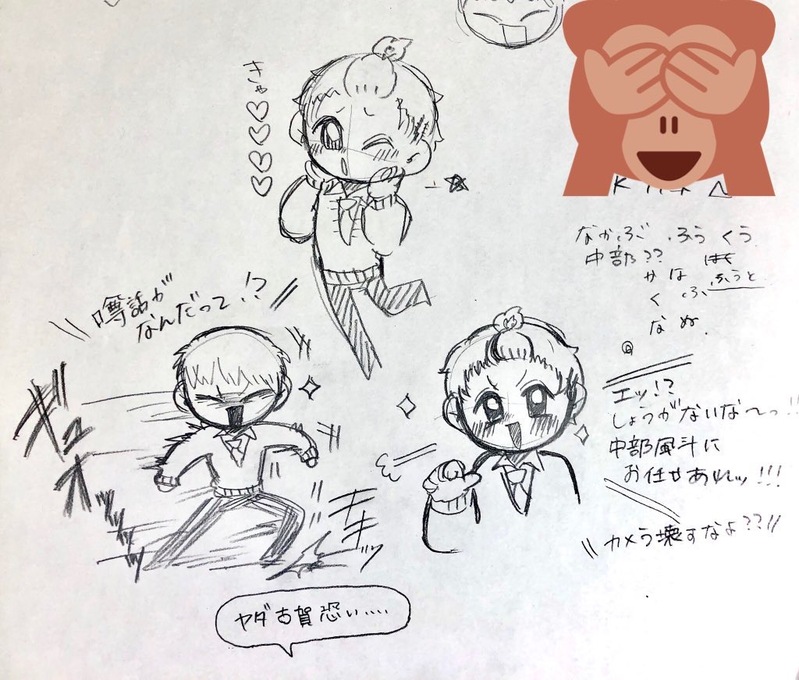 きゃ♡♡♡♡
なかぶ ふうくう
中部??
ふうと
噂話が
なんだって!?
ギュオ
キキッ
エッ!?
しょうがないな〜っ!!
中部風斗に
お任せあれッ!!!
カメラ壊すなよ??!!
ヤダ古賀恐い....